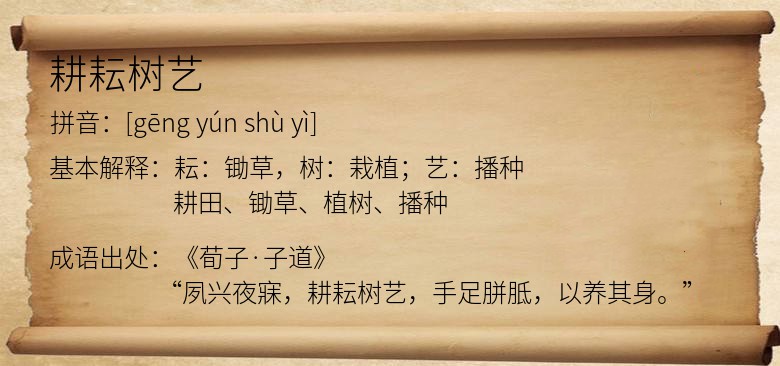 耕耘树艺
拼音：[gēng yún shù yì]
基本解释：耘：锄草，树：栽植；艺：播种
耕田、锄草、植树、播种
成语出处：《荀子·子道》
“夙兴夜寐，耕耘树艺，手足胼胝，以养其身。”